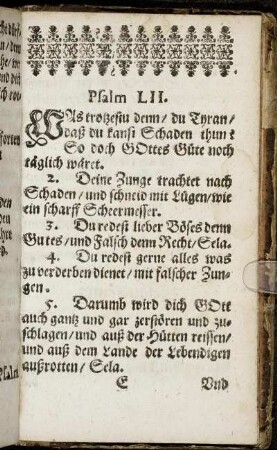 Psalm LII.
WAs trotzestu denn / du Tyran /
daß du kanst Schaden thun?
So doch GOttes Güte noch
täglich wäret.
2. Deine Zunge trachtet nach
Schaden / und schneid mit Lügen / wie
ein scharff Scheermesser.
3. Du redest lieber Böses denn
Gutes / und Falsch denn Recht / Sela.
4. Du redest gerne alles was
zu verderben dienet / mit falscher Zun-
gen.
5. Darumb wird dich GOtt
auch gantz und gar zerstören und zu-
schlagen / und auß der Hütten reissen /
und auß dem Lande der Lebendigen
außrotten / Sela.
E Vnd